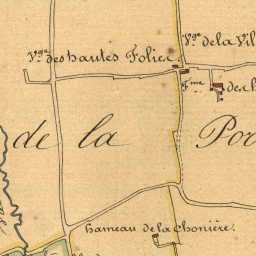 Vge de la Vil
Vge des hautes Folies
Fme des h
de la Por
hameau de la Chonière.